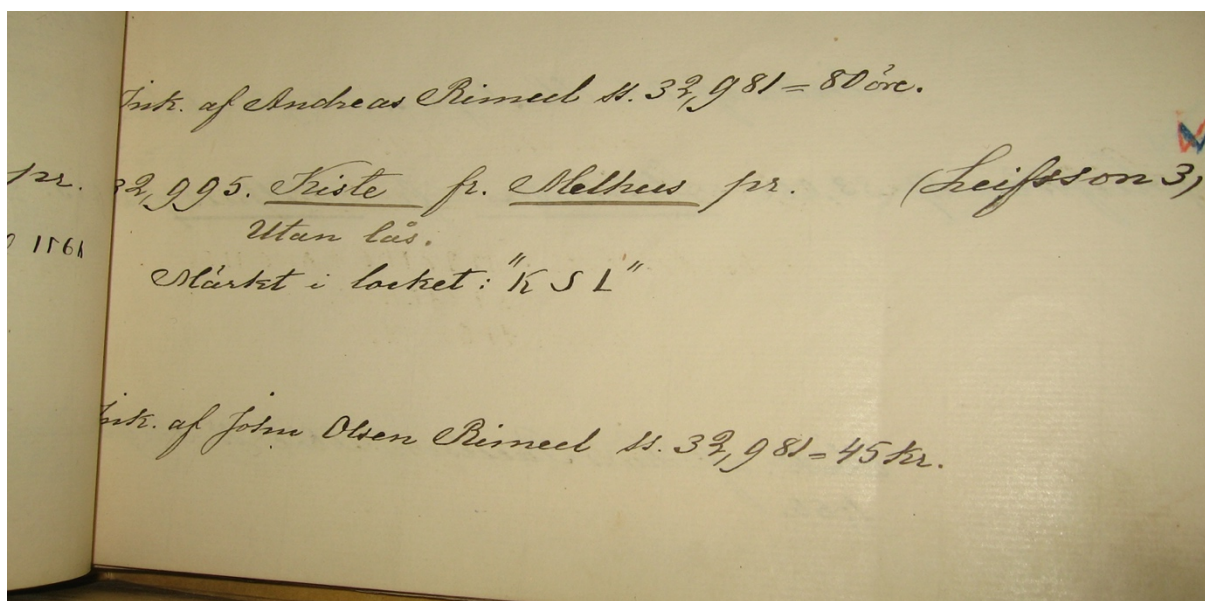 Ink. af Andreas Rimeel ss. 32,981 = 80 öre.
pr. 32,995. Kiste fr. Melhus pr. (Leifsson 3)
Utan lås.
Märkt i locket: "K S L"
Ink. af John Olsen Rimeel ss. 32,981 = 45 kr.